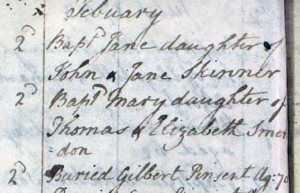 Febuary
2d Bapt Jane daughter of
John & Jane Skinner
2d Bapt Mary daughter of
Thomas & Elizabeth Smer
-don
2d Buried Gilbert Pinsent Ag: 70